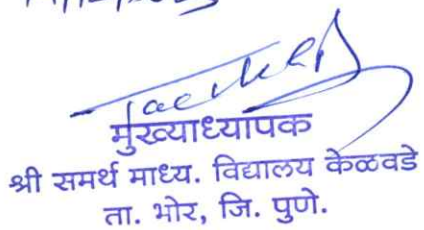 मुख्याध्यापक
श्री समर्थ माध्य. विद्यालय केळवडे
ता. भोर, जि. पुणे.